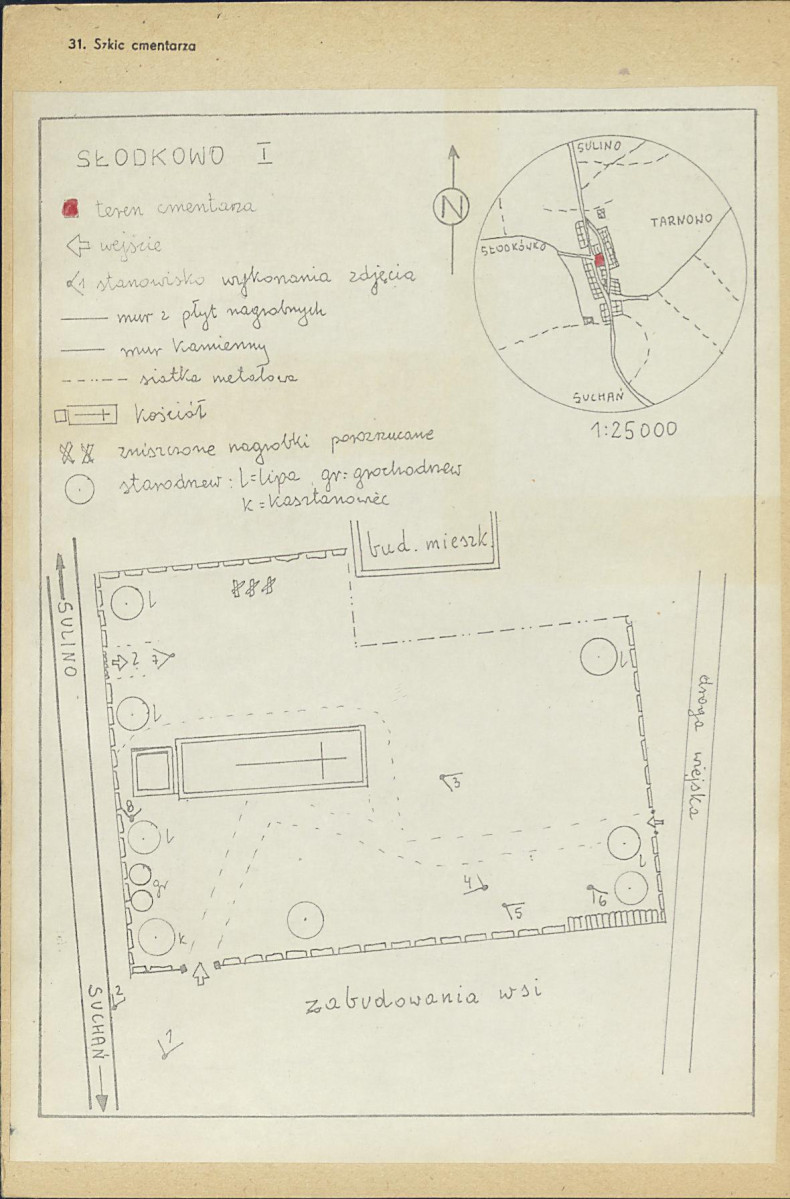 31. Szkic cmentarza
SŁODKOWO I
teren cmentarza
wejście
1 stanowisko wykonania zdjęcia
mur z płyt nagrobnych
mur kamienny
siatka metalowa
kościół
zniszczone nagrobki porozrzucane
starodrzew: l=lipa, gr=grochodrzew
k=kasztanowiec
N
SULINO
TARNOWO
SŁODKÓWKO
SUCHAŃ
1:25000
bud. mieszk.
SULINO
l
2
7
l
l
droga wiejska
3
8
l
gr
l
4
5
6
k
zabudowania wsi
2
SUCHAŃ
1